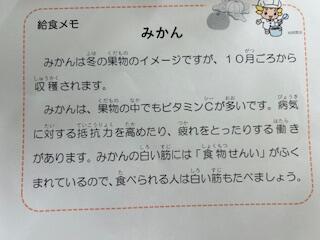 給食メモ
みかん
みかんは冬の果物のイメージですが、10月ごろから
収穫されます。
みかんは、果物の中でもビタミンCが多いです。病気
に対する抵抗力を高めたり、疲れをとったりする働き
があります。みかんの白い筋には「食物せんい」がふく
まれているので、食べられる人は白い筋もたべましょう。